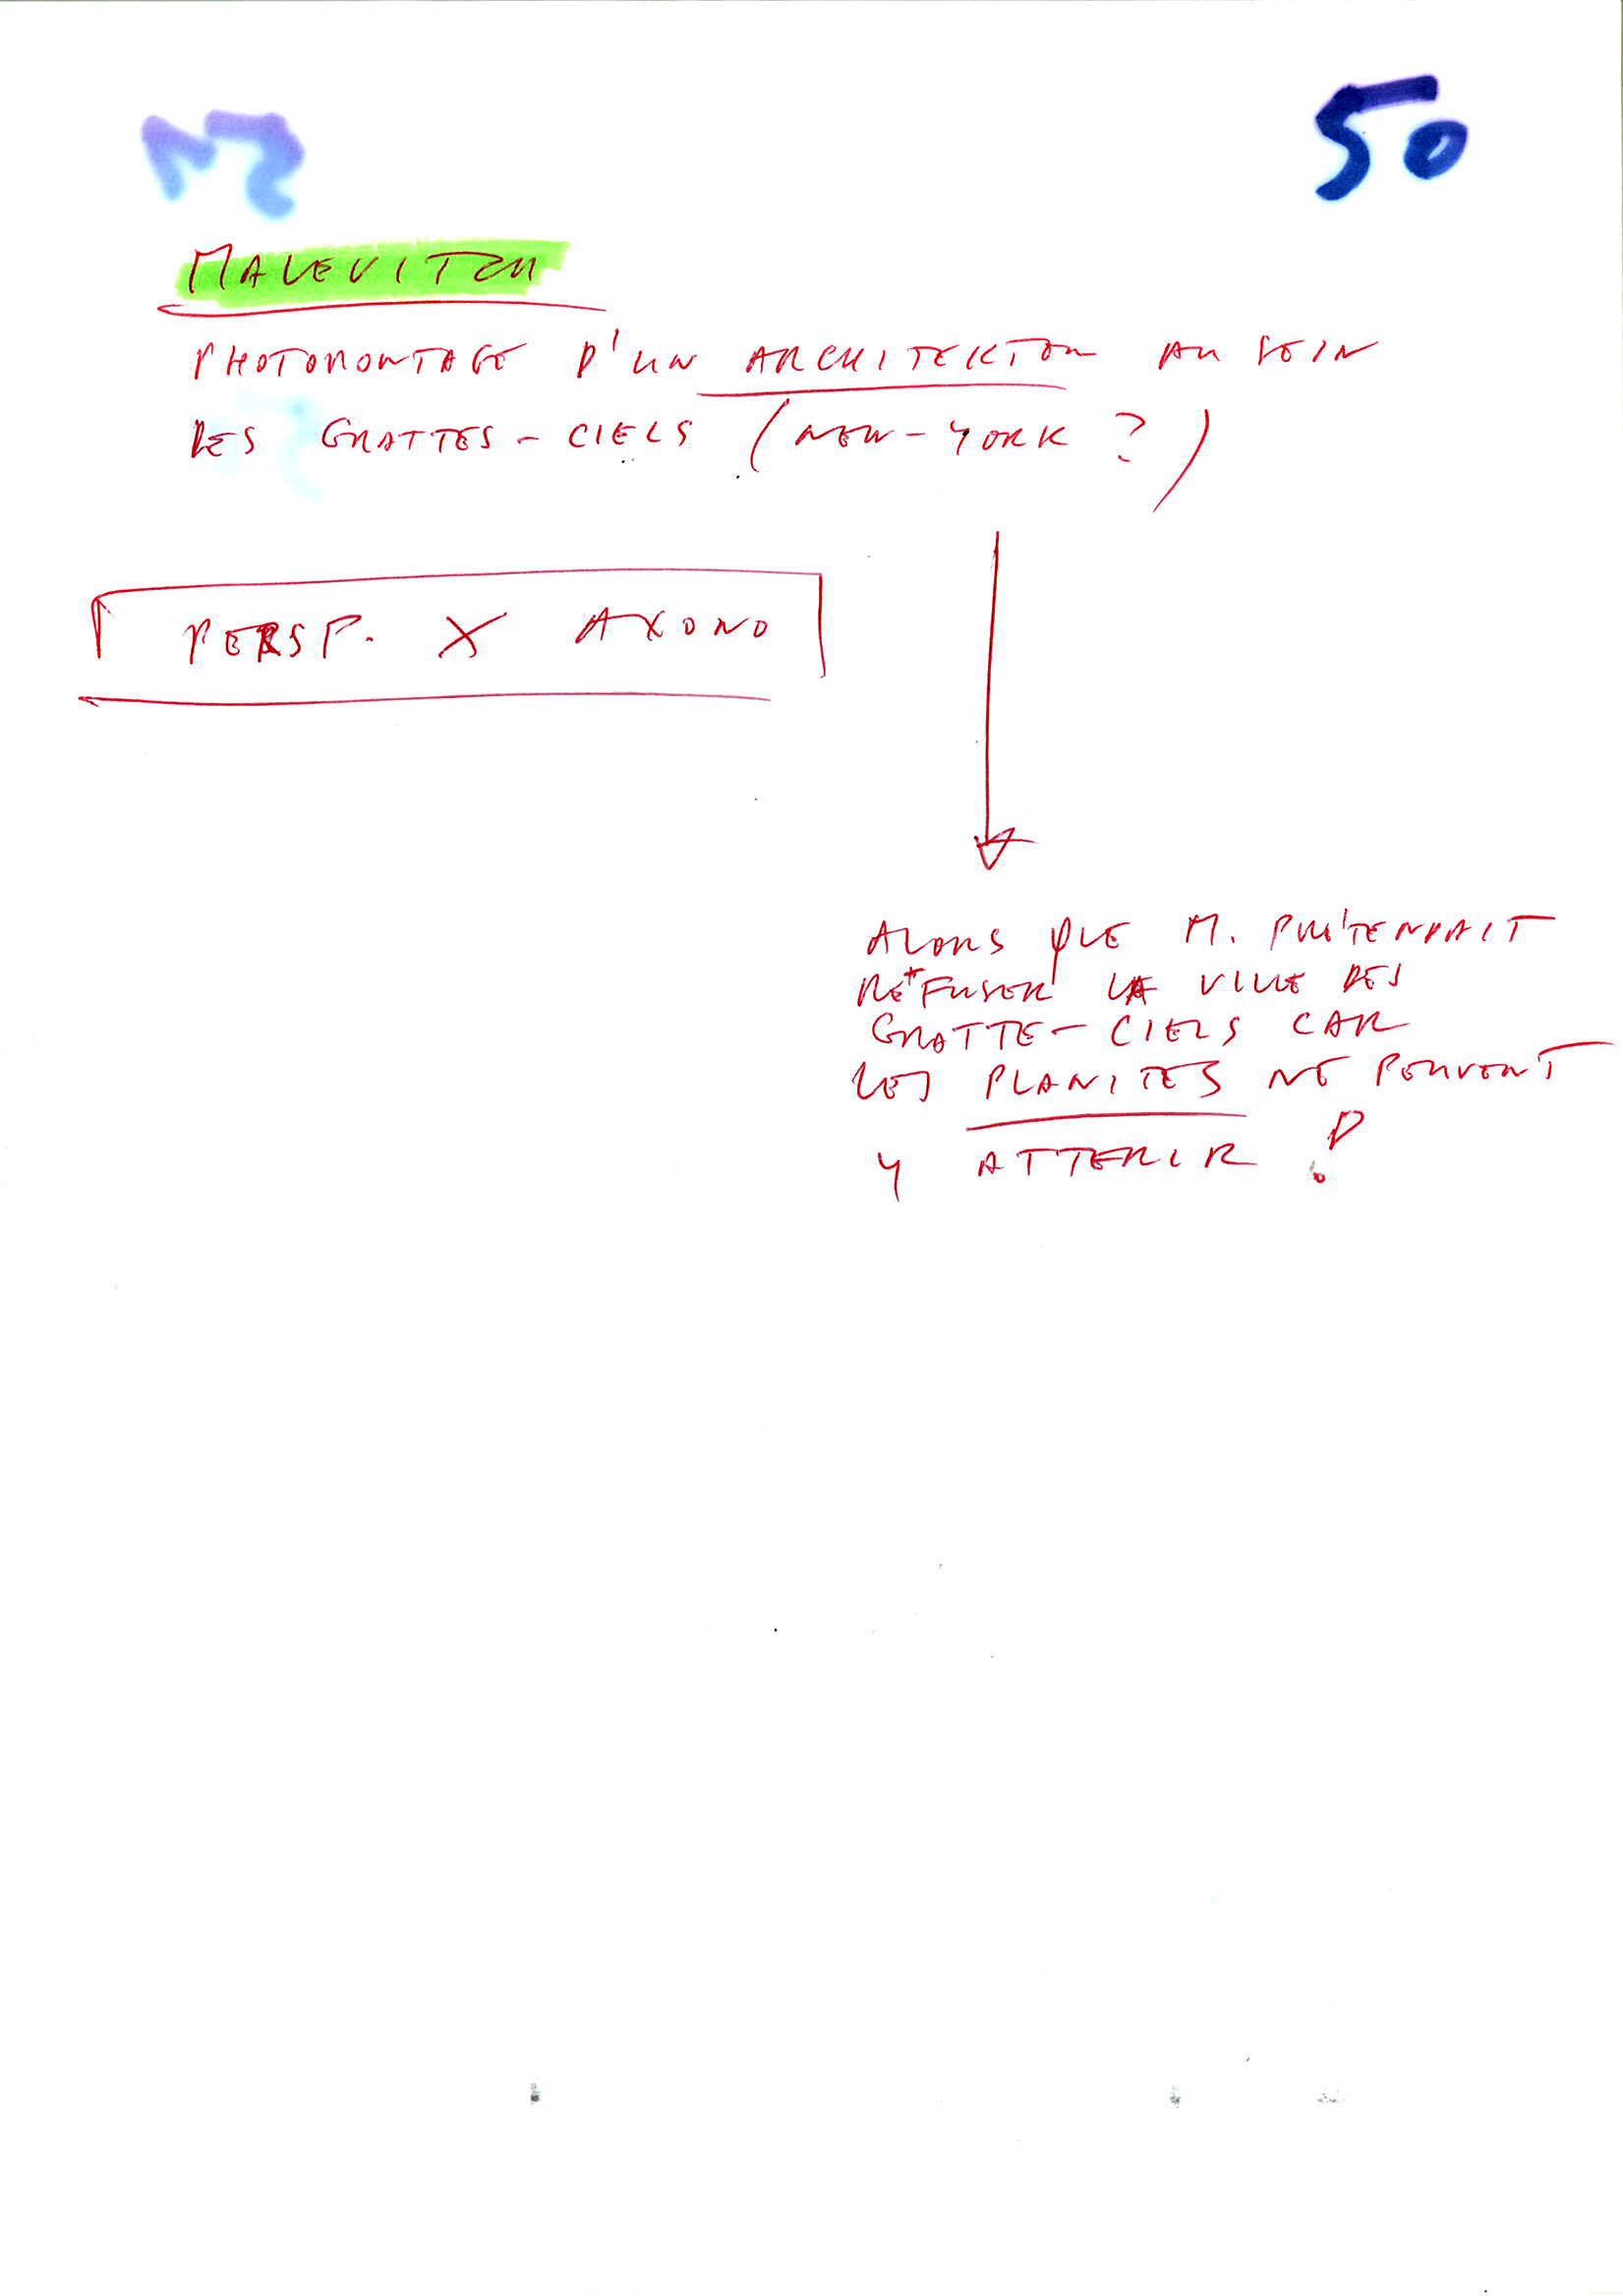 50
MALEVITCH
PHOTOMONTAGE D'UN ARCHITEKTON AU SEIN
DES GRATTES-CIELS (NEW-YORK ?)
PERSP. X AXONO
ALORS QUE M. PRÉTENDAIT
REFUSER LA VILLE DES
GRATTE-CIELS CAR
LES PLANITES NE PEUVENT
Y ATTERIR !